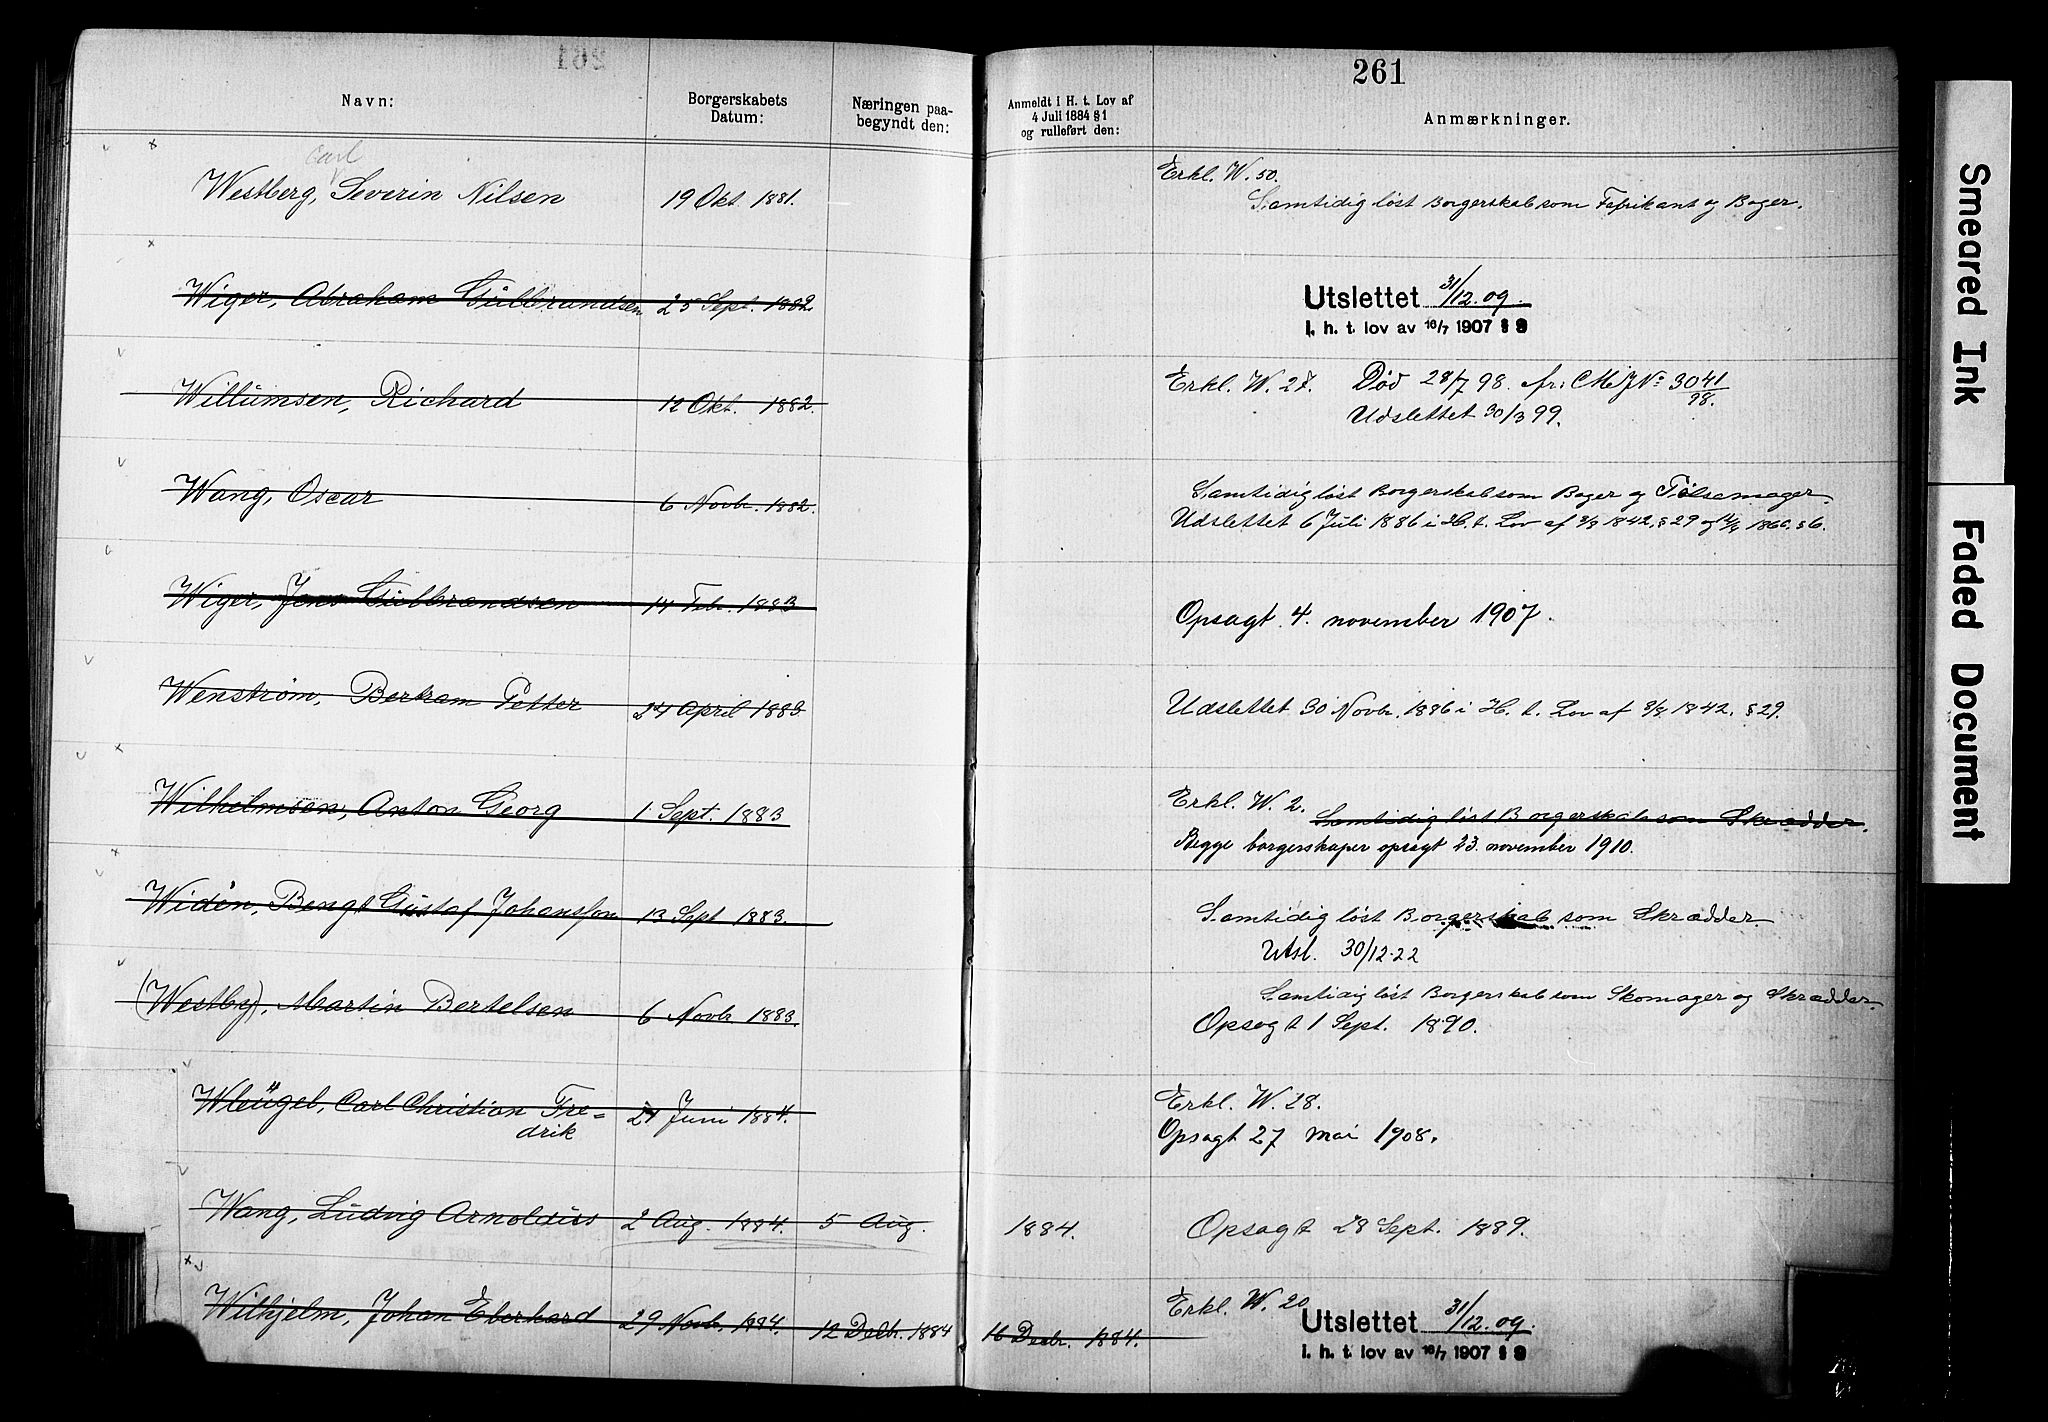 261
Navn:
Borgerskabets
Datum:
Næringen paa-
begyndt den:
Anmeldt i H. t. Lov af
4 Juli 1884 § 1
og rulleført den:
Anmærkninger.
Carl
Westberg, Severin Nilsen 19 Okt. 1881. Erkl. W. 50.
Samtidig løst Borgerskab som Fabrikant og Bager.
Wiger, Abraham Gulbrandsen 25 Sept. 1882. Utslettet 31/12.09.
I. h. t. lov av 16/7 1907 § 9
Willumsen, Richard 12 Okt. 1882. Erkl. W. 27. Død 28/7 98. 3041/98.
Udslettet 30/3 99.
Wang, Oscar 6 Novbr. 1882. Samtidig løst Borgerskab som Bager og Pølsemager.
Udslettet 6 Juli 1886 i H. t. Lov af 8/8 1842, § 29 og 1866, § 6.
Wiger, Jens Gulbrandsen 14 Febr. 1883 Opsagt 4. november 1907.
Wenstrøm, Bertram Petter 24 April 1883. Udslettet 30 Novbr. 1886 i H. t. Lov af 8/8 1842, § 29.
Wilhelmsen, Anton Georg 1 Sept. 1883 Erkl. W. 2. Samtidig løst Borgerskab som Skrædder.
Begge borgerskaper opsagt 23. november 1910.
Widén, Bengt Gustaf Johansson 13 Sept 1883. Samtidig løst Borgerskab som Skrædder.
Utsl. 30/12.22
(Westby), Martin Bertelsen 6 Novbr 1883. Samtidig løst Borgerskab som Skomager og Skrædder.
Opsagt 1 Sept. 1890.
Wleügel, Carl Christian Fre=
drik 24 Juni 1884. Erkl. W. 28.
Opsagt 27 mai 1908.
Wang, Ludvig Arnoldus 2 Aug. 1884. 5 Aug. 1884. Opsagt 28 Sept. 1889.
Wilhjelm, Johan Eberhard 29 Novb. 1884. 12 Decbr. 1884 16 Decbr. 1884. Erkl. W. 20
Utslettet 31/12.09.
I. h. t. lov av 16/7 1907 § 9
Smeared Ink
Faded Document